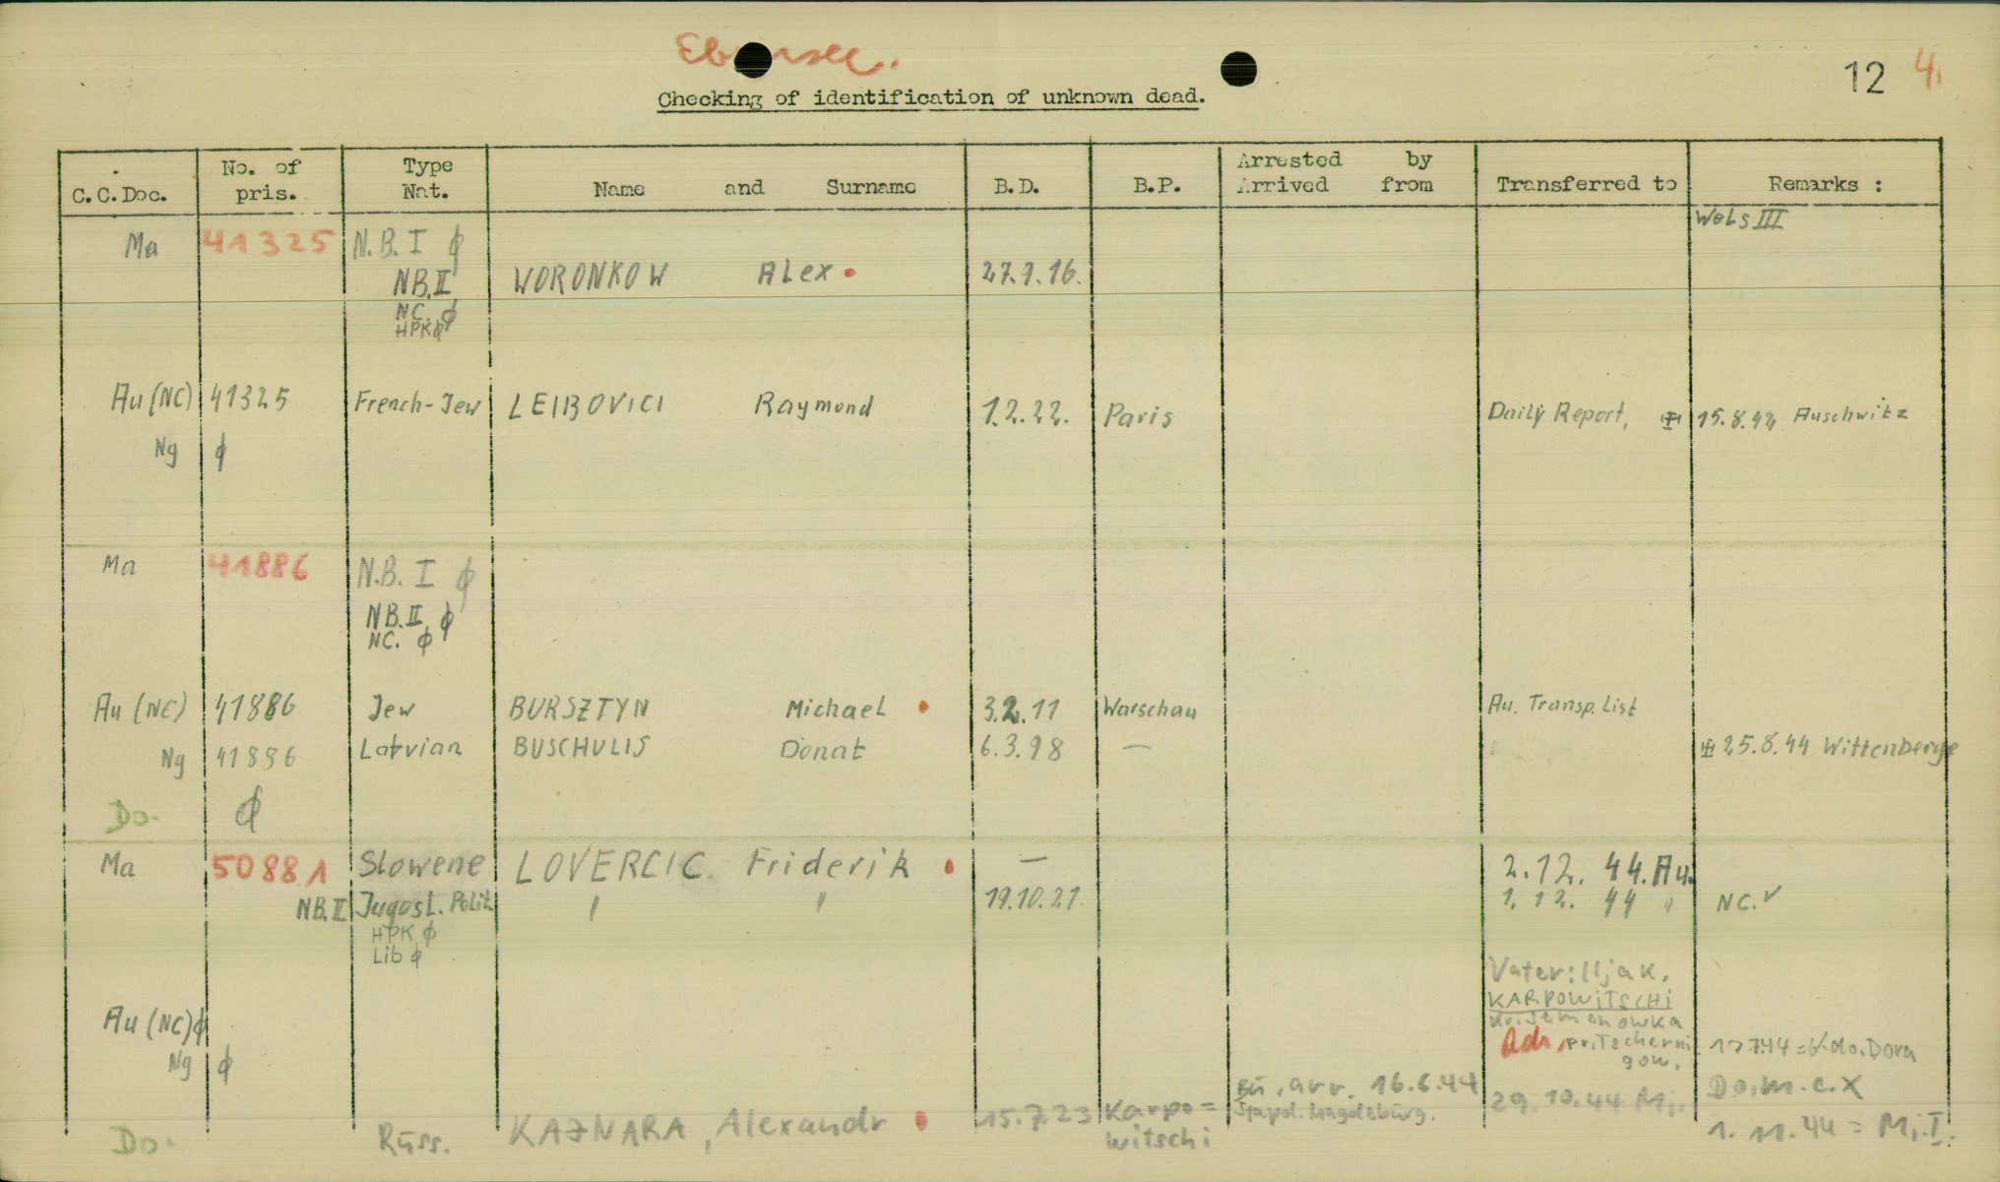 12 4.
Checking of identification of unknown dead.
C.C.Doc. No. of pris. Type Nat. Name and Surname B.D. B.P. Arrested by Arrived from Transferred to Remarks :
Wels III
Ma 41325 N.B. I ϕ
NB.II WORONKOW Alex 27.9.16.
NC. ϕ
HPK ϕ
Au (NC) 41325 French-Jew LEIBOVICI Raymond 1.2.22. Paris Daily Report, 15.8.42 Auschwitz
Ng ϕ
Ma 41886 N.B. I ϕ
NB.II ϕ
NC. ϕ
Au (NC) 41886 Jew BURSZTYN Michael 3.2.11 Warschau Au. Transp. List
Ng 41886 Latvian BUSCHULIS Donat 6.3.98 — 25.8.44 Wittenberge
Do. ϕ
Ma 50881 Slowene LOVERCIC. Friderik — 2.12. 44. Au.
NB.II Jugosl. Polit. " " 19.10.21. 1. 12. 44 " NC. ✓
HPK ϕ
Lib ϕ
Vater: Iljak,
KARPOWITSCHI
Au (NC) ϕ
Adr. pr. Tscherni
gow. 17.7.44 = Kdo. Dora
Ng ϕ
Bu, arr. 16.6.44 Do. m. c. X
Stapol. Magdeburg. 29.10.44 Mi.
Do. Russ. KAJNARA, Alexandr 15.7.23 Karpo=
witschi 1. 11. 44 = Mi. I.